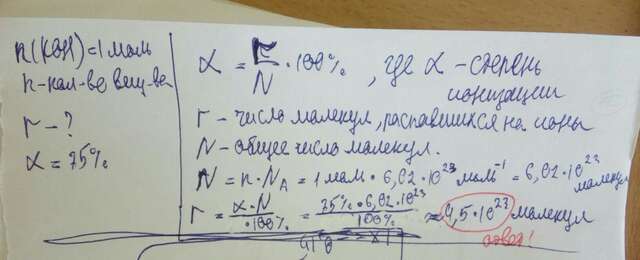 n(KOH)=1 моль
n-кол-во вещ-ва
r - ?
α = 75%
α = r/N · 100%, где α - степень
ионизации
r - число малекул, распавшихся на ионы
N - общее число малекул.
N = n · N_A = 1 моль · 6,02 · 10^23 моль^-1 = 6,02 · 10^23
малекул
r = α · N / · 100% = 75% · 6,02 · 10^23 / 100% ≈ 4,5 · 10^23 малекул